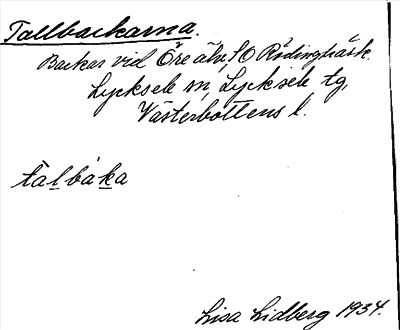 Tallbackarna.
Backar vid Öre älv, SO Rödingträsk.
Lycksele sn, Lycksele tg,
Västerbottens l.
tàlbáka
Lisa Lidberg 1934.